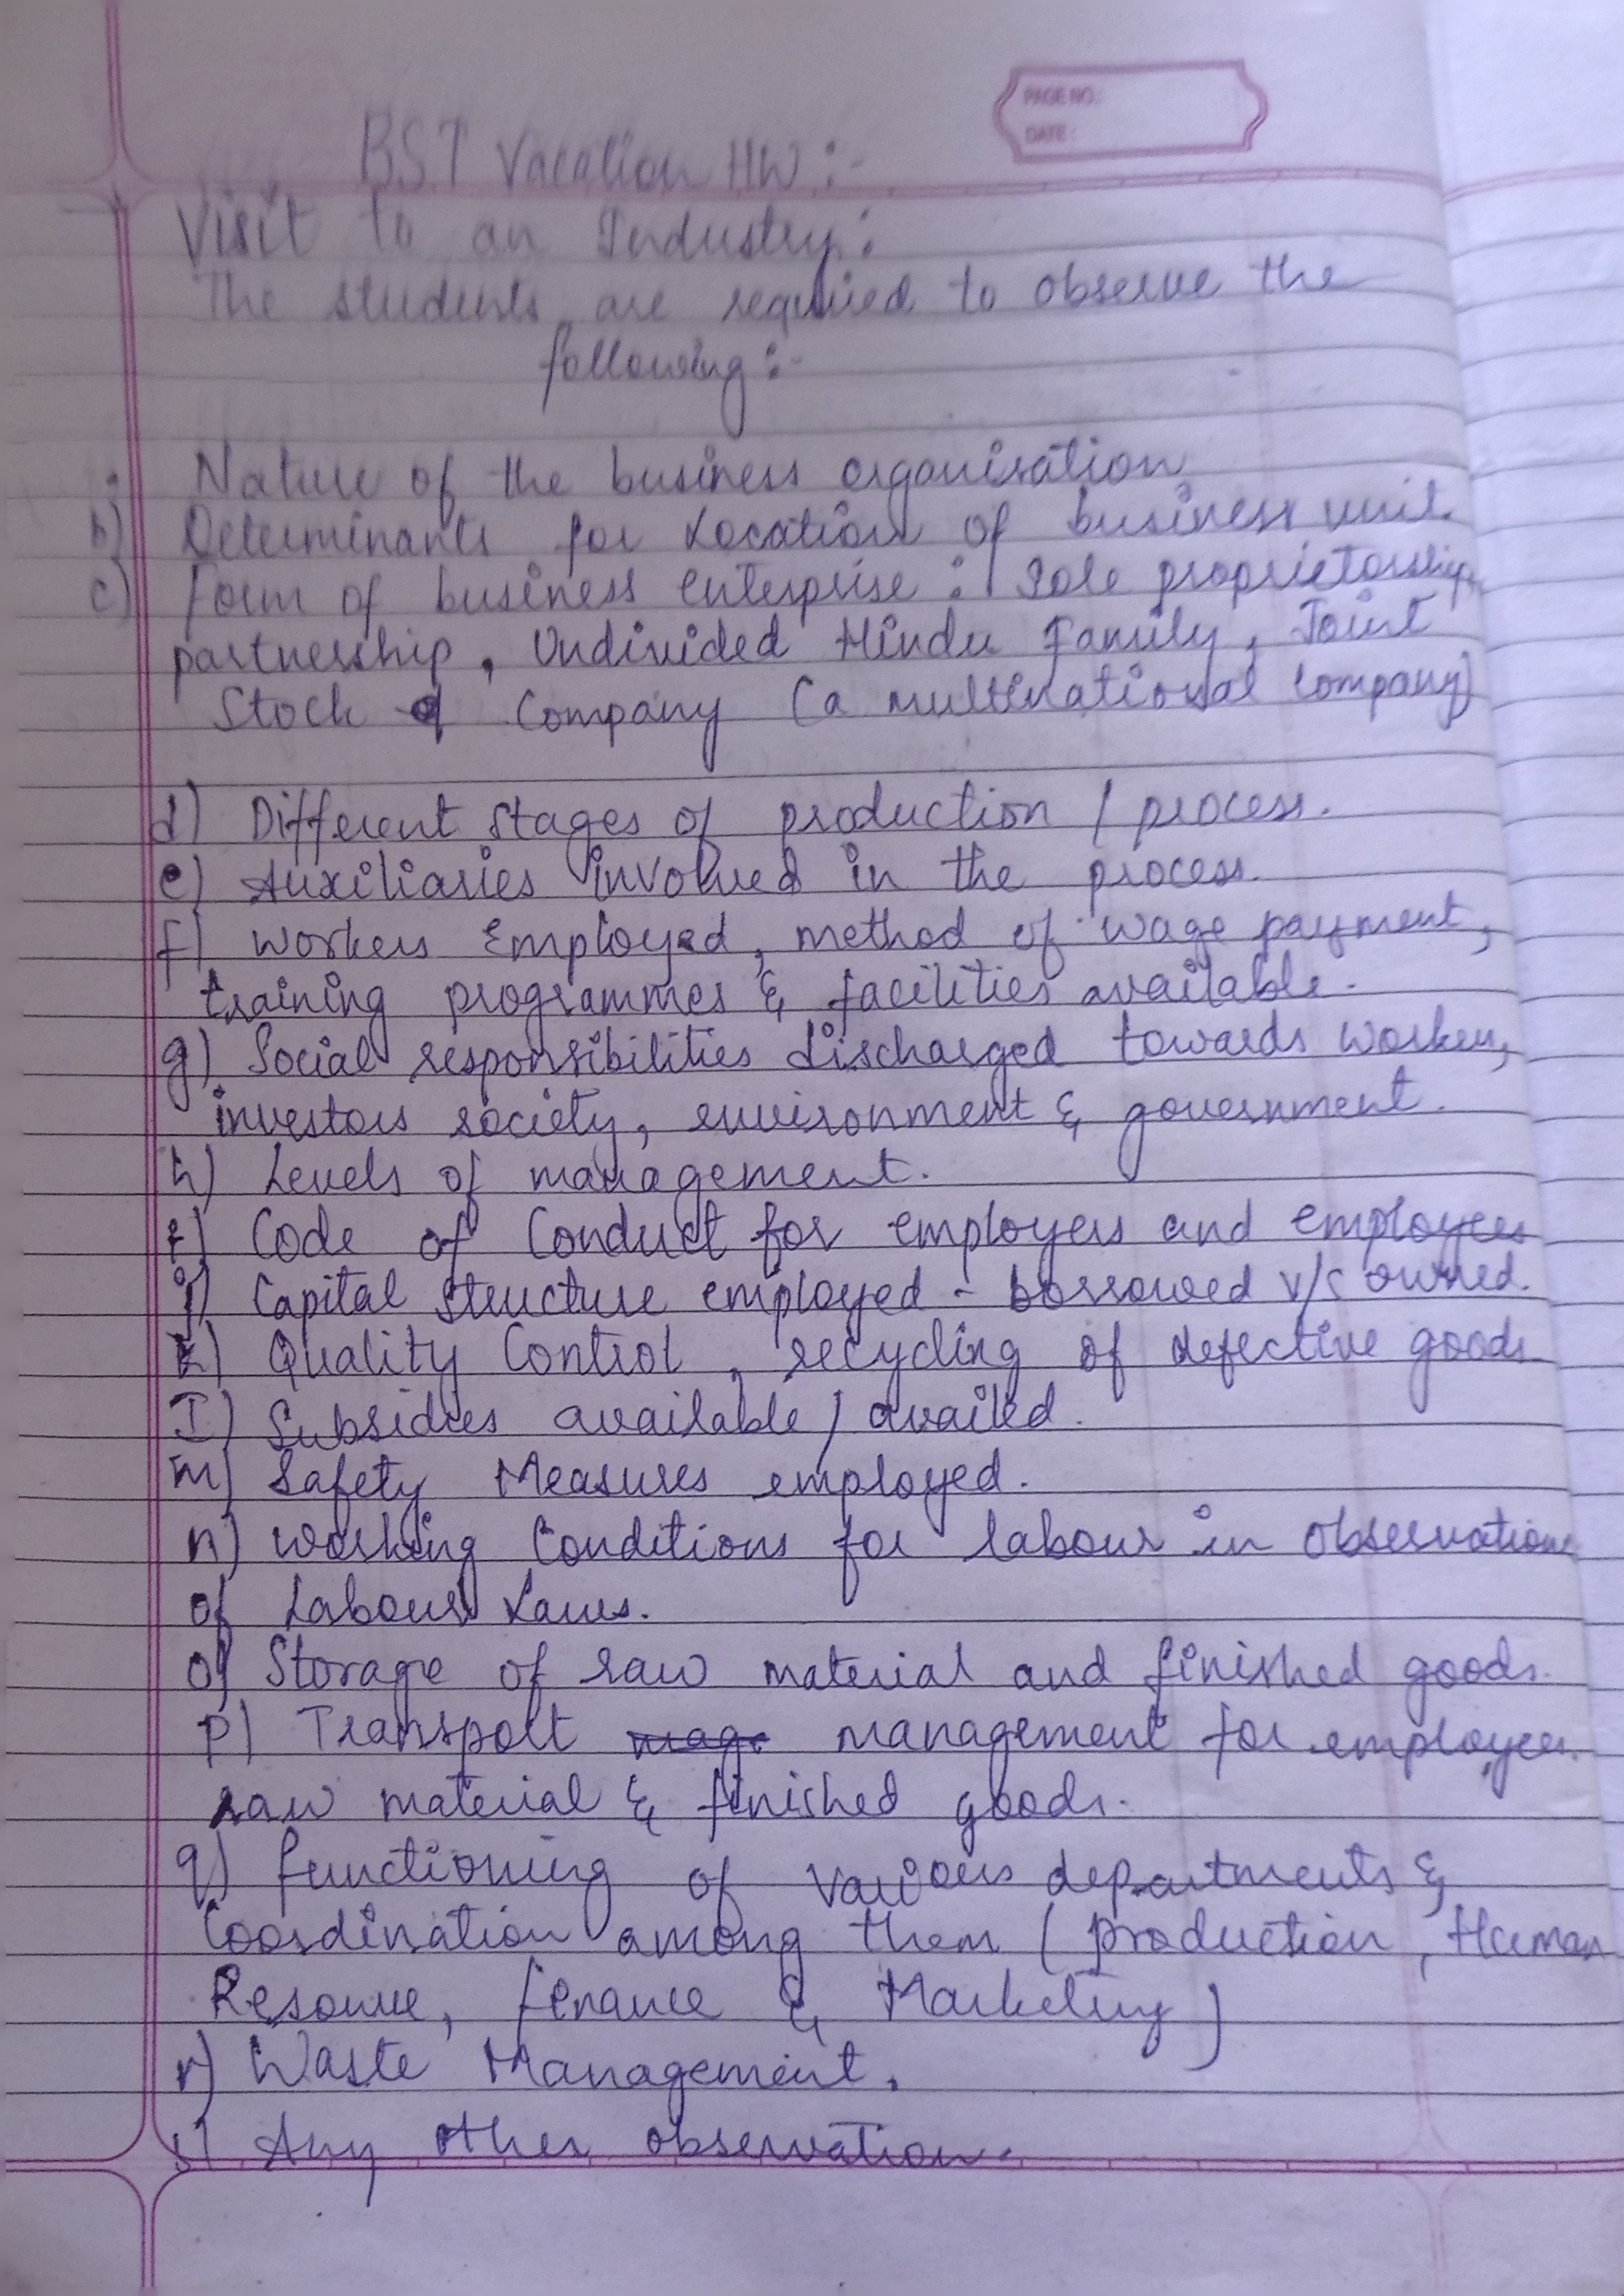 PAGE NO.:
DATE:
BST Vacation HW:-
Visit to an Industry:
The students are required to observe the
following:-
Nature of the business organisation
b) Determinants for Location of business unit.
c) Form of business enterprise: Sole proprietorship,
partnership, Undivided Hindu Family, Joint
Stock Company (a multinational company)
d) Different stages of production / process.
e) Auxiliaries involved in the process.
f) Workers Employed, method of wage payment,
training programmes & facilities available.
g) Social responsibilities discharged towards workers,
investors society, environment & government.
h) Levels of management.
i) Code of Conduct for employers and employees
j) Capital structure employed - borrowed v/s owned.
k) Quality Control, recycling of defective goods
I) Subsidies available / availed.
m) Safety Measures employed.
n) Working Conditions for labour in observation
of Labour Laws.
o) Storage of raw material and finished goods.
p) Transport management for employees.
raw material & finished goods.
q) functioning of various departments &
Coordination among them (Production, Human
Resource, finance & Marketing)
r) Waste Management.
s) Any other observation.